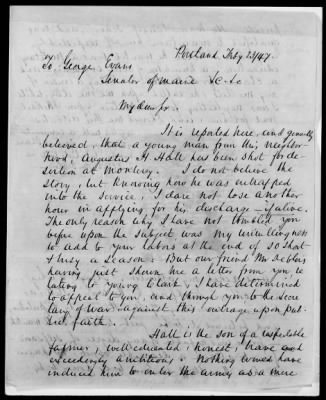 Portland Feby 23/47
To George Evans
Senator of Maine &c &c
My dear sir.
It is reported here, and generally
believed, that a young man from this neighbor-
hood, Augustus H. Hall has been shot for de-
sertion at Monterey. I do not believe the
story, but knowing how he was entrapped
into the service, I dare not lose another
hour in applying for his discharge if alive.
The only reason why I have not troubled you
before upon the subject was my unwillingness
to add to your labors at the end of so short
& busy a season: But our friend Mr
having just shown me a letter from you, re
lating to young Clark, I have determined
to appeal to you, and through you to the Secre
tary of War against this outrage upon pub
lic faith.
Hall is the son of a respectable
farmer; well educated, honest, brave and
exceedingly ambitious. Nothing would have
induced him to enter the army as a mere